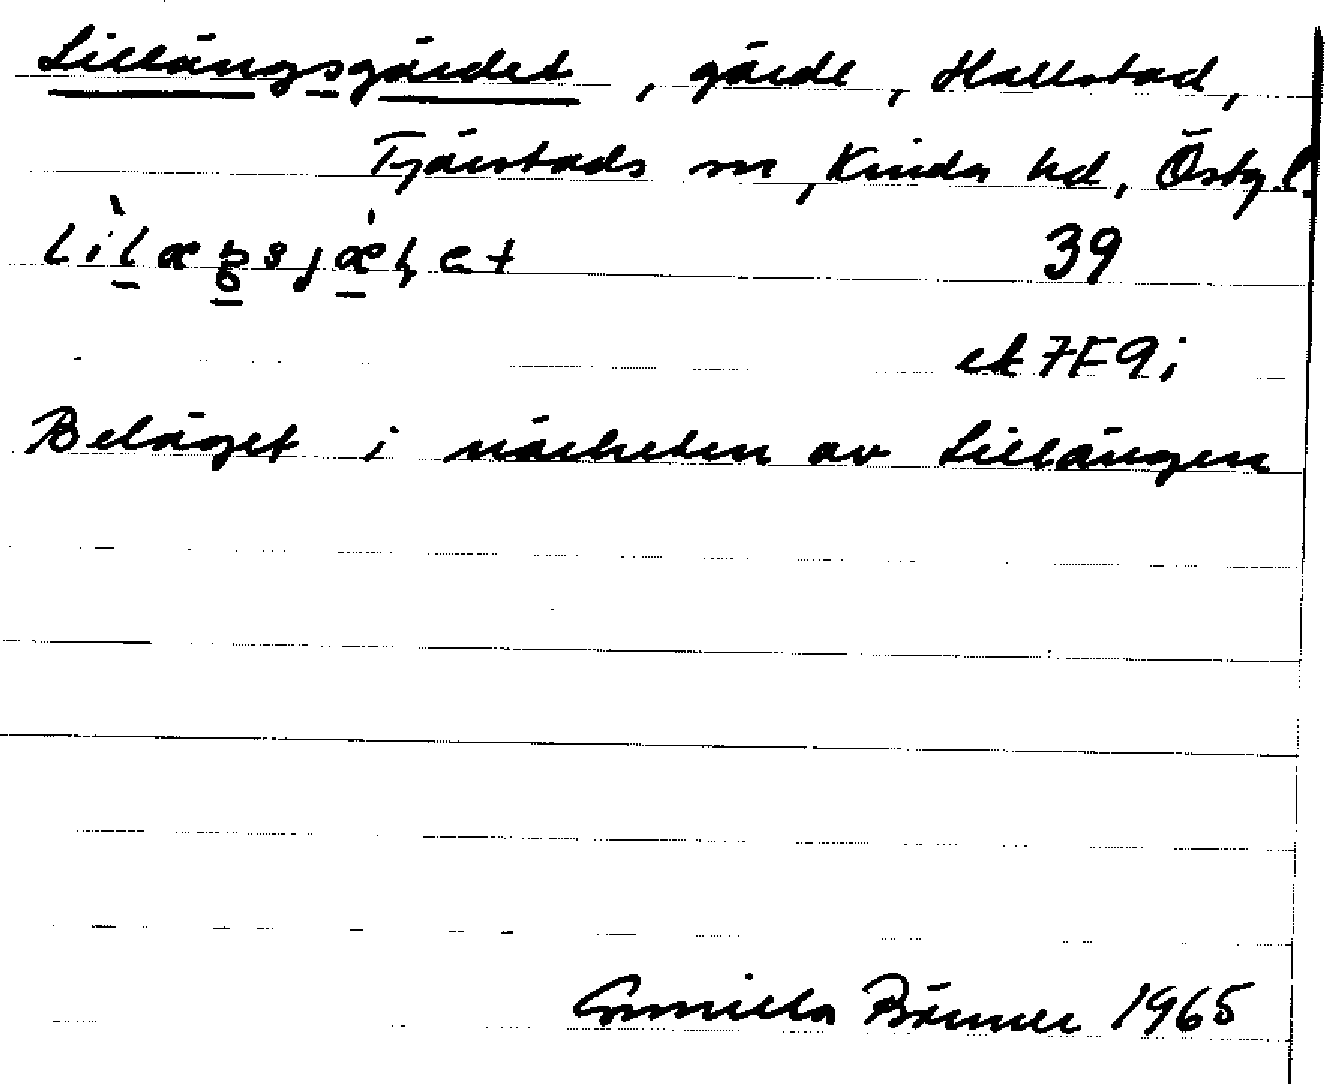 Lillängsgärdet, gärde, Hallstad,
Tjärstads sn, Kinda hd, Östg l.
39
ek 7F9i
Beläget i närheten av Lillängen
Gunilla Bånner 1965